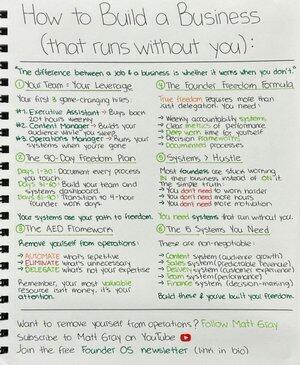 How to Build a Business
(that runs without you):
"The difference between a job & a business is whether it works when you don't."
① Your Team = Your Leverage
Your first 3 game-changing hires:
#1. Executive Assistant → Buys back
20+ hours weekly
#2. Content Manager → Builds your
audience while you sleep
#3. Operations Manager → Runs your
systems when you're gone
② The 90-Day Freedom Plan
Days 1-30: Document every process
you touch
Days 31-60: Build your team and
systems dashboard.
Days 61-90: Transition to 4-hour
founder work days
Your systems are your path to freedom.
③ The AED Framework
Remove yourself from operations:
→ AUTOMATE what's repetitive
→ ELIMINATE what's unnecessary
→ DELEGATE what's not your expertise
Remember, your most valuable
resource isn't money, it's your
attention.
④ The Founder Freedom Formula
True freedom requires more than
just delegation. You need:
→ Weekly accountability systems
→ Clear metrics of performance
→ Deep work time for yourself
→ Decision frameworks
→ Documented processes
⑤ Systems > Hustle
Most founders are stuck working
IN their business instead of ON it.
The simple truth:
→ You don't need to work harder
→ You don't need more hours
→ You don't need more motivation
You need systems that run without you.
⑥ The 5 Systems You Need
These are non-negotiable:
→ Content system (audience growth)
→ Sales system (predictable revenue)
→ Delivery system (customer experience)
→ Team system (performance)
→ Finance system (decision-making)
Build these & you've built your freedom.
Want to remove yourself from operations? Follow Matt Gray
Subscribe to Matt Gray on YouTube
Join the free Founder OS newsletter (link in bio)